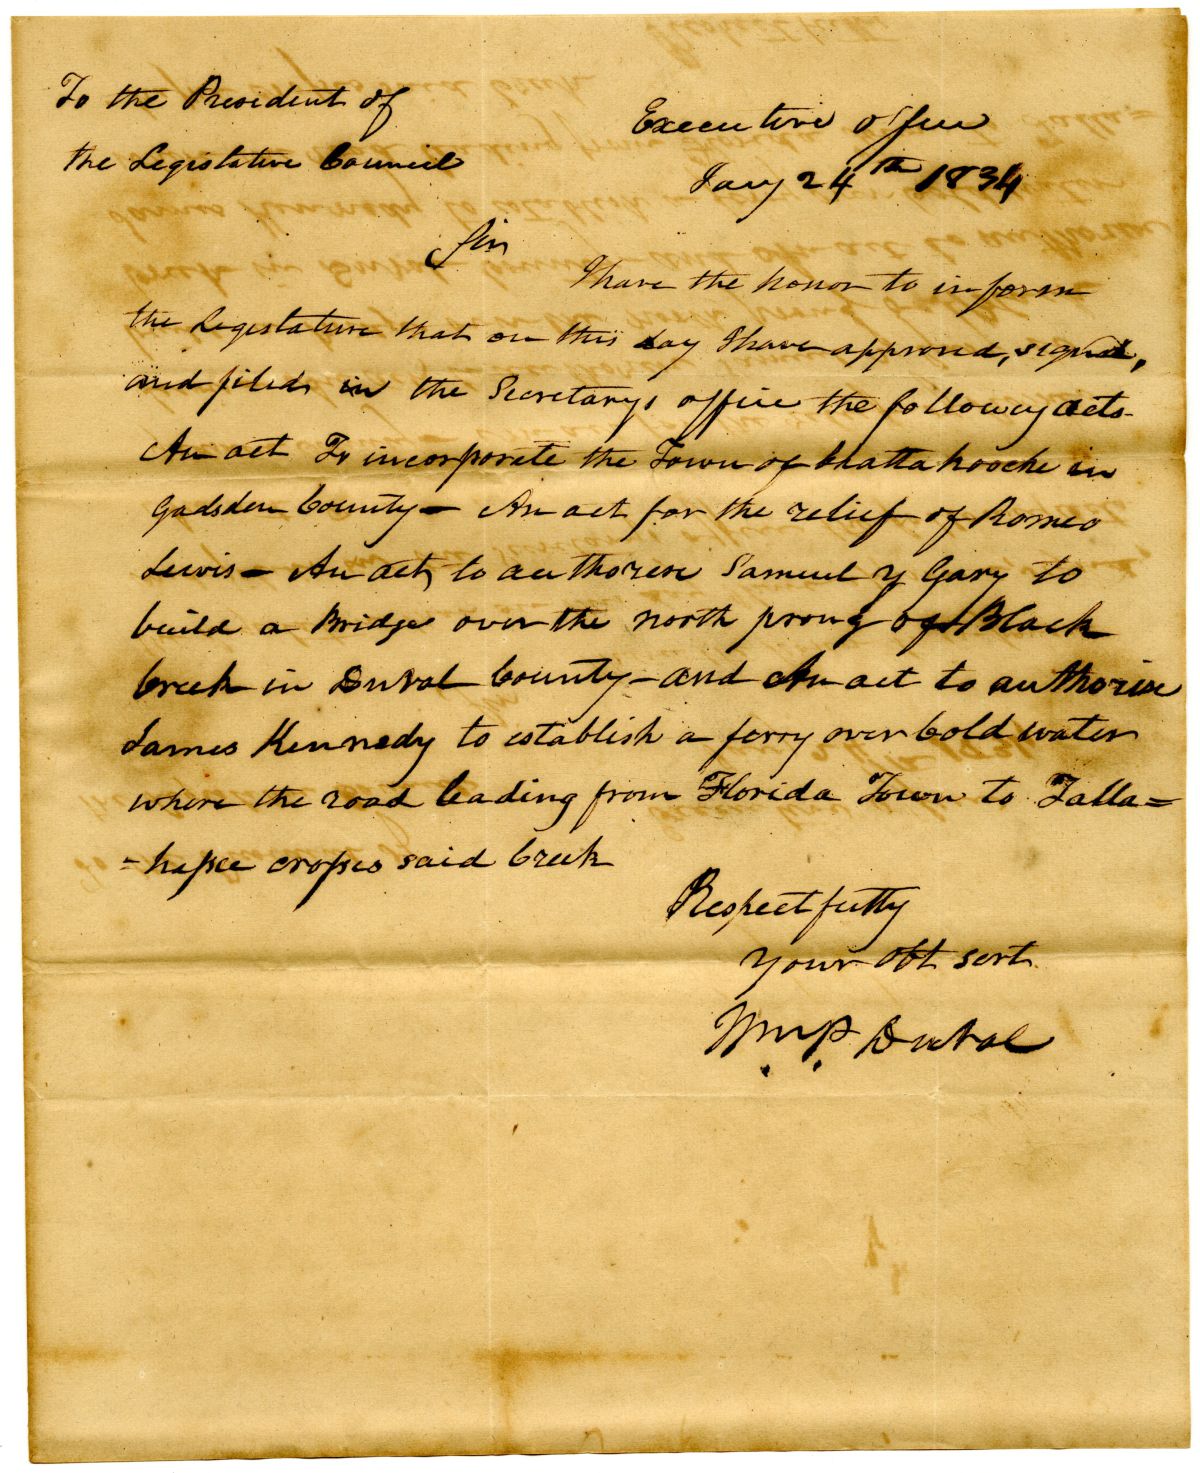 To the President of
the Legislative Council
Executive office
Jany 24th 1834
Sir
I have the honor to inform
the Legislature that on this day I have approved, signed,
and filed in the Secretarys office the following acts
An act To incorporate the Town of Chattahooche in
Gadsden County - An act for the relief of Romeo
Lewis - An act, to authorise Samuel Y Gary to
build a Bridge over the north prong of Black
Creek in Duval County - and An act to authorise
James Kennedy to establish a ferry over Cold water
where the road leading from Florida Town to Talla=
=hassee crosses said Creek
Respectfully
your obt servt.
Wm P DuVal